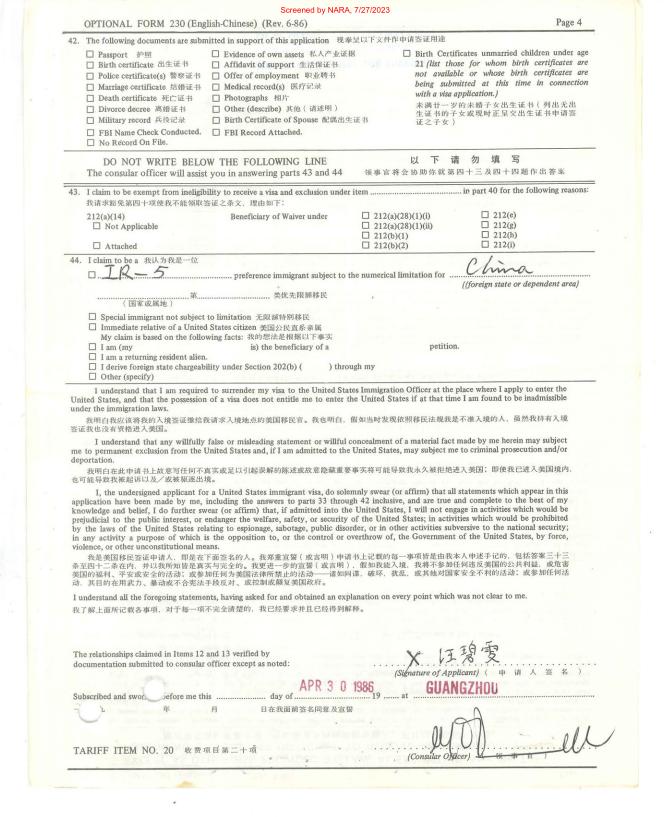 Screened by NARA, 7/27/2023
OPTIONAL FORM 230 (English-Chinese) (Rev. 6-86) Page 4
42. The following documents are submitted in support of this application 现奉呈以下文件作申请签证用途
☐ Passport 护照
☐ Birth certificate 出生证书
☐ Police certificate(s) 警察证书
☐ Marriage certificate 结婚证书
☐ Death certificate 死亡证书
☐ Divorce decree 离婚证书
☐ Military record 兵役记录
☐ FBI Name Check Conducted.
☐ No Record On File.
☐ Evidence of own assets 私人产业证据
☐ Affidavit of support 生活保证书
☐ Offer of employment 职业聘书
☐ Medical record(s) 医疗记录
☐ Photographs 相片
☐ Other (describe) 其他（请述明）
☐ Birth Certificate of Spouse 配偶出生证书
☐ FBI Record Attached.
☐ Birth Certificates unmarried children under age
21 (list those for whom birth certificates are
not available or whose birth certificates are
being submitted at this time in connection
with a visa application.)
未满廿一岁的未婚子女出生证书（列出无出
生证书的子女或现时正呈交出生证书申请签
证之子女）
DO NOT WRITE BELOW THE FOLLOWING LINE 以下请勿填写
The consular officer will assist you in answering parts 43 and 44 领事官将会协助你就第四十三及四十四题作出答案
43. I claim to be exempt from ineligibility to receive a visa and exclusion under item .......... in part 40 for the following reasons:
我请求豁免第四十项使我不能领取签证之条文，理由如下：
212(a)(14) Beneficiary of Waiver under
☐ Not Applicable
☐ Attached
☐ 212(a)(28)(1)(i)
☐ 212(a)(28)(1)(ii)
☐ 212(b)(1)
☐ 212(b)(2)
☐ 212(e)
☐ 212(g)
☐ 212(h)
☐ 212(i)
44. I claim to be a 我认为我是一位
☐ IR-5 preference immigrant subject to the numerical limitation for China
((foreign state or dependent area)
..........第.......... 类优先限额移民
（国家或属地）
☐ Special immigrant not subject to limitation 无限额特别移民
☐ Immediate relative of a United States citizen 美国公民直系亲属
My claim is based on the following facts: 我的想法是根据以下事实
☐ I am (my is) the beneficiary of a petition.
☐ I am a returning resident alien.
☐ I derive foreign state chargeability under Section 202(b) ( ) through my
☐ Other (specify)
I understand that I am required to surrender my visa to the United States Immigration Officer at the place where I apply to enter the
United States, and that the possession of a visa does not entitle me to enter the United States if at that time I am found to be inadmissible
under the immigration laws.
我明白我应该将我的入境签证缴给我请求入境地点的美国移民官。我也明白，假如当时发现依照移民法规我是不准入境的人，虽然我持有入境
签证我也没有资格进入美国。
I understand that any willfully false or misleading statement or willful concealment of a material fact made by me herein may subject
me to permanent exclusion from the United States and, if I am admitted to the United States, may subject me to criminal prosecution and/or
deportation.
我明白在此申请书上故意写任何不真实或足以引起误解的陈述或故意隐藏重要事实将可能导致我永久被拒绝进入美国；即使我已进入美国境内，
也可能导致我被起诉以及／或被驱逐出境。
I, the undersigned applicant for a United States immigrant visa, do solemnly swear (or affirm) that all statements which appear in this
application have been made by me, including the answers to parts 33 through 42 inclusive, and are true and complete to the best of my
knowledge and belief, I do further swear (or affirm) that, if admitted into the United States, I will not engage in activities which would be
prejudicial to the public interest, or endanger the welfare, safety, or security of the United States; in activities which would be prohibited
by the laws of the United States relating to espionage, sabotage, public disorder, or in other activities subversive to the national security;
in any activity a purpose of which is the opposition to, or the control or overthrow of, the Government of the United States, by force,
violence, or other unconstitutional means.
我是美国移民签证申请人，即是在下面签名的人。我郑重宣誓（或言明）申请书上记载的每一事项皆是由我本人申述手记的，包括答案三十三
条至四十二条在内，并以我所知皆是真实与完全的。我更进一步的宣誓（或言明），假如我能入境，我将不参加任何违反美国的公共利益，或危害
美国的福利、平安或安全的活动；或参加任何为美国法律所禁止的活动——诸如间谍、破坏、扰乱，或其他对国家安全不利的活动；或参加任何活
动，其目的在用武力、暴动或不合宪法手段反对、或控制或颠复美国政府。
I understand all the foregoing statements, having asked for and obtained an explanation on every point which was not clear to me.
我了解上面所记载各事项，对于每一项不完全清楚的，我已经要求并且已经得到解释。
The relationships claimed in Items 12 and 13 verified by
documentation submitted to consular officer except as noted:
X 汪碧雯
(Signature of Applicant) （申请人签名）
Subscribed and swor efore me this .......... day of APR 30 1986 19 ..... at GUANGZHOU
年 月 日在我面前签名同意及宣誓
TARIFF ITEM NO. 20 收费项目第二十项
(Consular Officer) （领事官）